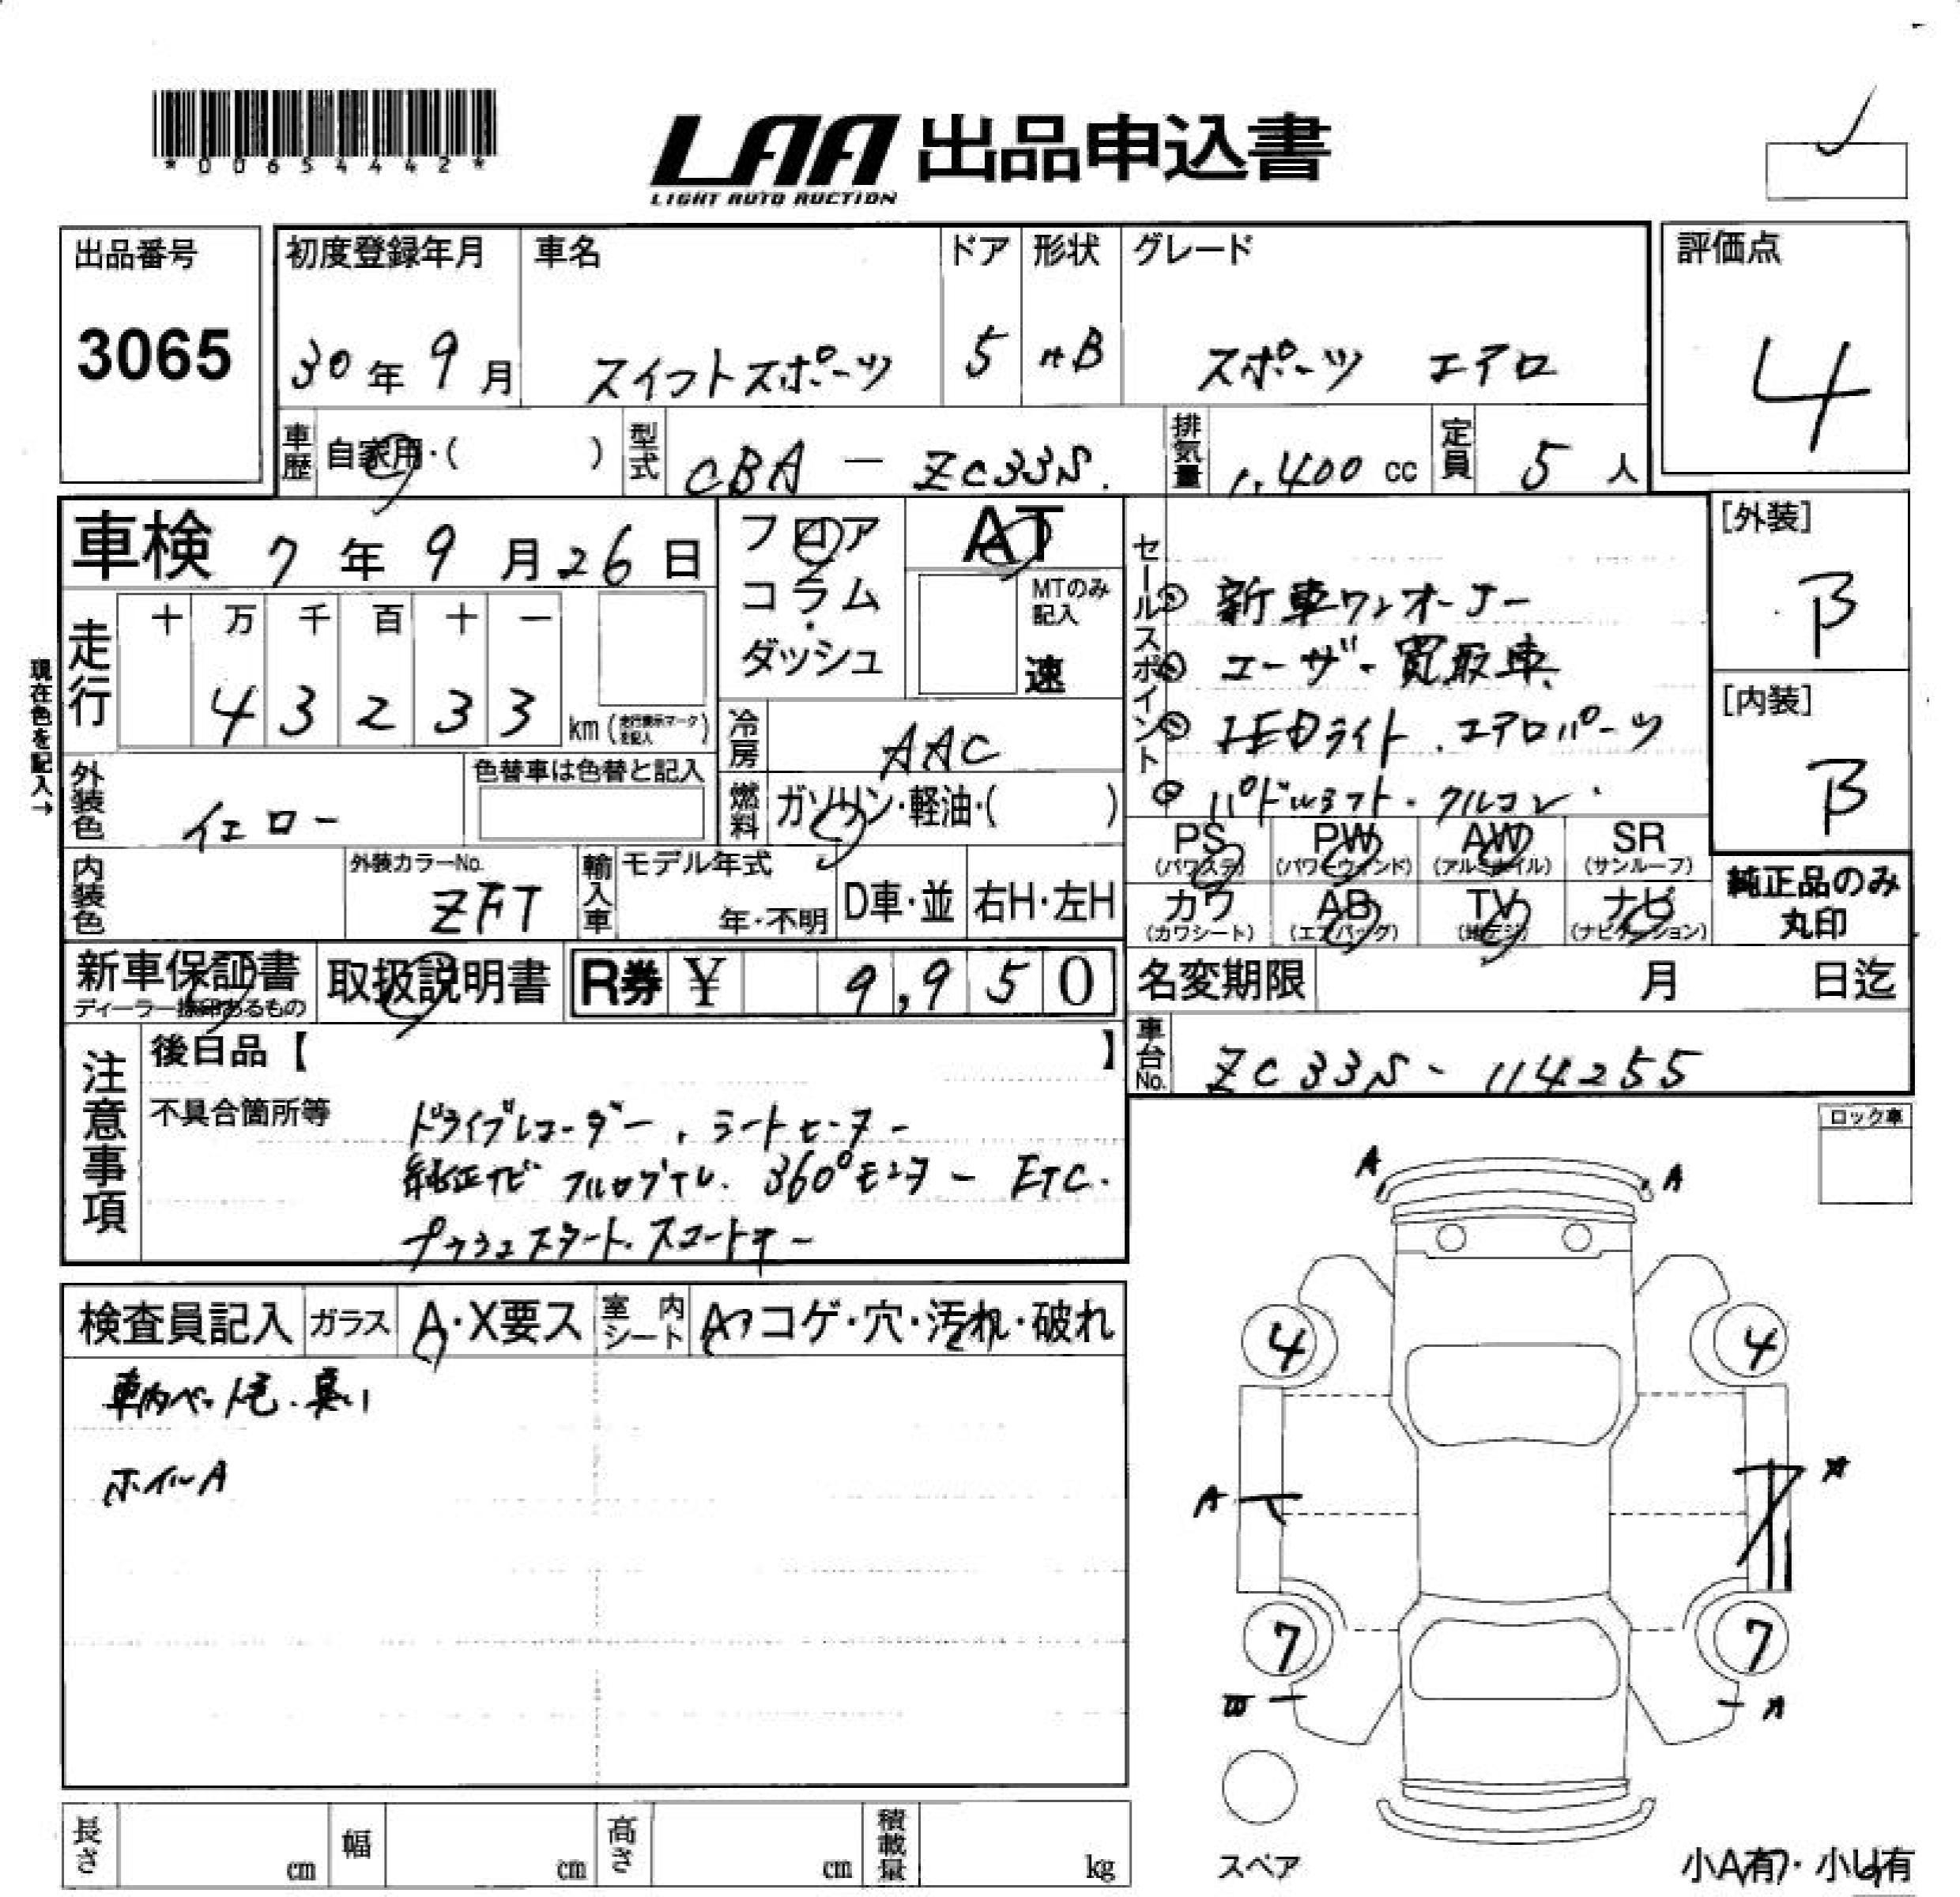 *00654442*
LAA 出品申込書
LIGHT AUTO AUCTION
出品番号
3065
初度登録年月
30年9月
車名
スイフトスポーツ
ドア
5
形状
HB
グレード
スポーツ エアロ
評価点
4
車歴 自家用・( )
型式 CBA - ZC33S.
排気量 1.400 cc
定員 5人
車検 7年9月26日
フロア
コラム
ダッシュ
AT
MTのみ記入
速
現在色を記入→
走行
十 万 千 百 十 一
4 3 2 3 3
km (走行表示マークを記入)
冷房 AAC
外装色 イエロー
色替車は色替と記入
燃料 ガソリン・軽油・( )
内装色
外装カラーNo.
ZFT
輸入車
モデル年式
年・不明
D車・並
右H・左H
セールスポイント
新車ワンオーナー
ユーザー買取車
LEDライト.エアロパーツ
パドルシフト.クルコン.
[外装]
B
[内装]
B
PS (パワステ)
PW (パワーウィンド)
AW (アルミホイル)
SR (サンルーフ)
カワ (カワシート)
AB (エアバッグ)
TV (地デジ)
ナビ (ナビゲーション)
純正品のみ丸印
新車保証書
ディーラー捺印あるもの
取扱説明書
R券 ¥ 9,950
名変期限 月 日迄
車台No. ZC33S - 114255
注意事項
後日品【 】
不具合箇所等
ドライブレコーダー.シートヒーター
純正ナビ フルセグTV. 360°モニター ETC.
プッシュスタート.スコートキー
ロック車
検査員記入
ガラス A・X要ス
室内シート A・コゲ・穴・汚れ・破れ
車内ペット毛.臭い
ホイルA
A A
4 4
A A
7 7
W A
スペア
小A有・小U有
長さ cm
幅 cm
高さ cm
積載量 kg